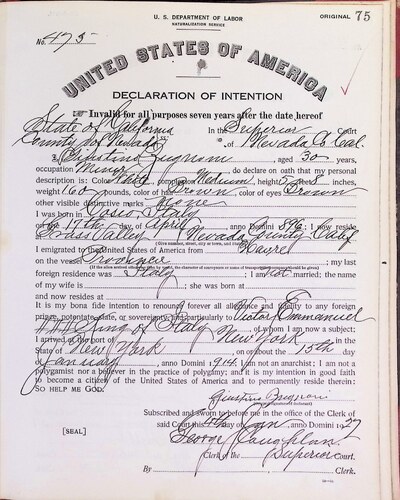 U. S. DEPARTMENT OF LABOR
NATURALIZATION SERVICE
ORIGINAL 75
No. 475
UNITED STATES OF AMERICA
DECLARATION OF INTENTION
Invalid for all purposes seven years after the date hereof
State of California
In the Superior Court
County of Nevada
of Nevada Co Cal.
I, aged 30 years,
occupation Miner, do declare on oath that my personal
description is: Color White, complexion Medium, height 5 feet 8 inches,
weight 160 pounds, color of hair Brown, color of eyes Brown
other visible distinctive marks None
I was born in Italy
on the 19th day of April, anno Domini 1896; I now reside
at Grass Valley Nevada County Calif
(Give number, street, city or town, and State.)
I emigrated to the United States of America from Havre
on the vessel ; my last
foreign residence was Italy; I am not married; the name
of my wife is ; she was born at
and now resides at
It is my bona fide intention to renounce forever all allegiance and fidelity to any foreign
prince, potentate, state, or sovereignty, and particularly to Victor Emmanuel
III King of Italy, of whom I am now a subject;
I arrived at the port of New York, in the
State of New York, on or about the 15th day
of January, anno Domini 1914; I am not an anarchist; I am not a
polygamist nor a believer in the practice of polygamy; and it is my intention in good faith
to become a citizen of the United States of America and to permanently reside therein:
SO HELP ME GOD.
Subscribed and sworn to before me in the office of the Clerk of
[SEAL]
said Court this day of Jan, anno Domini 1927
George
Clerk of the Superior Court.
By , Clerk.